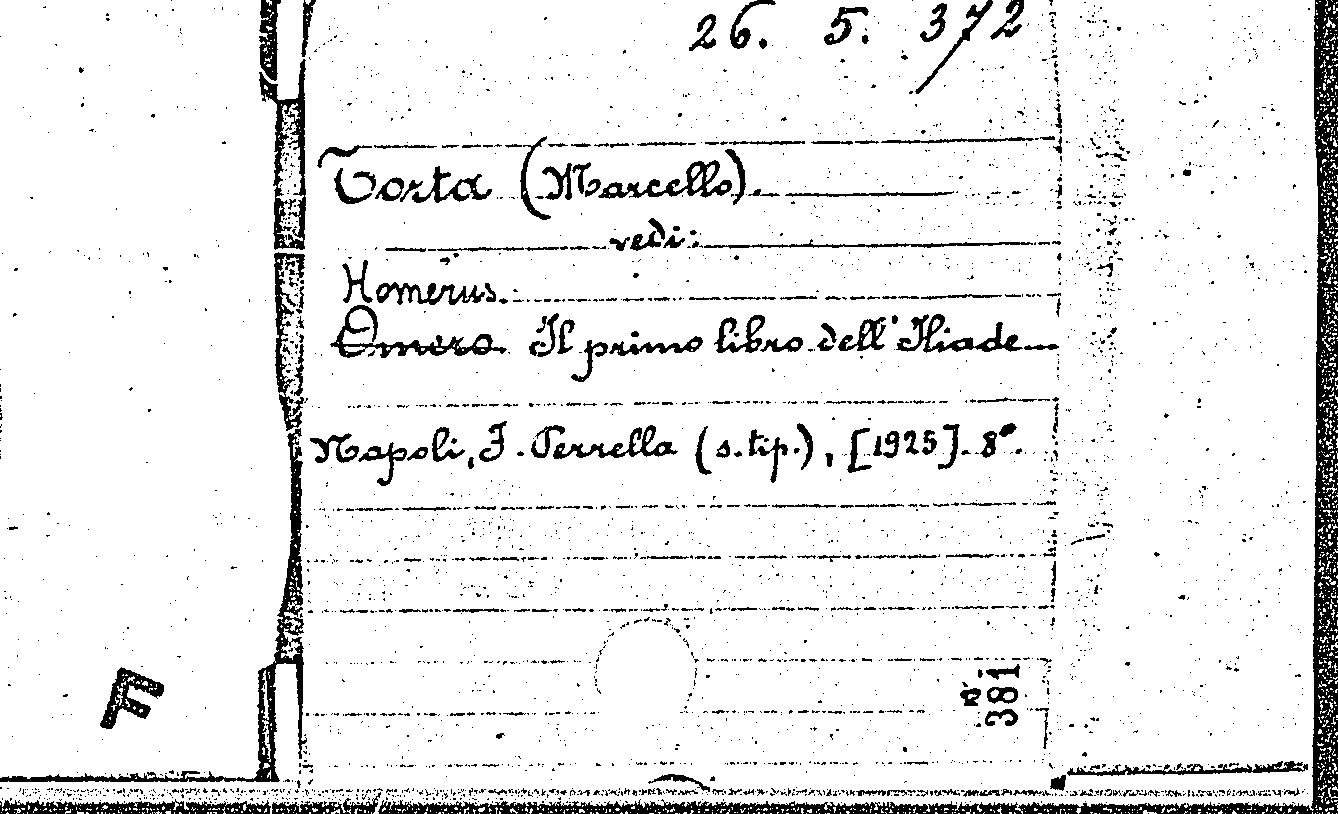 26. 5. 372
Torta (Marcello).
vedi:
Homerus.
Omero. Il primo libro dell'Iliade...
Napoli, F. Perrella (s. tip.), [1925]. 8°.
381
F